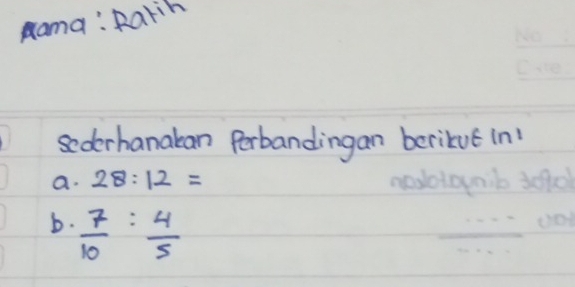 Nama : Ratih
No :
Date
Sederhanakan Perbandingan berikut ini
a. 28 : 12 =
b. 7/10 : 4/5